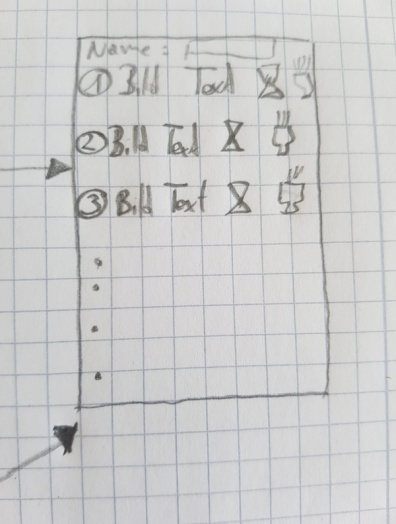 Name:
① Bild Text
② Bild Text
③ Bild Text